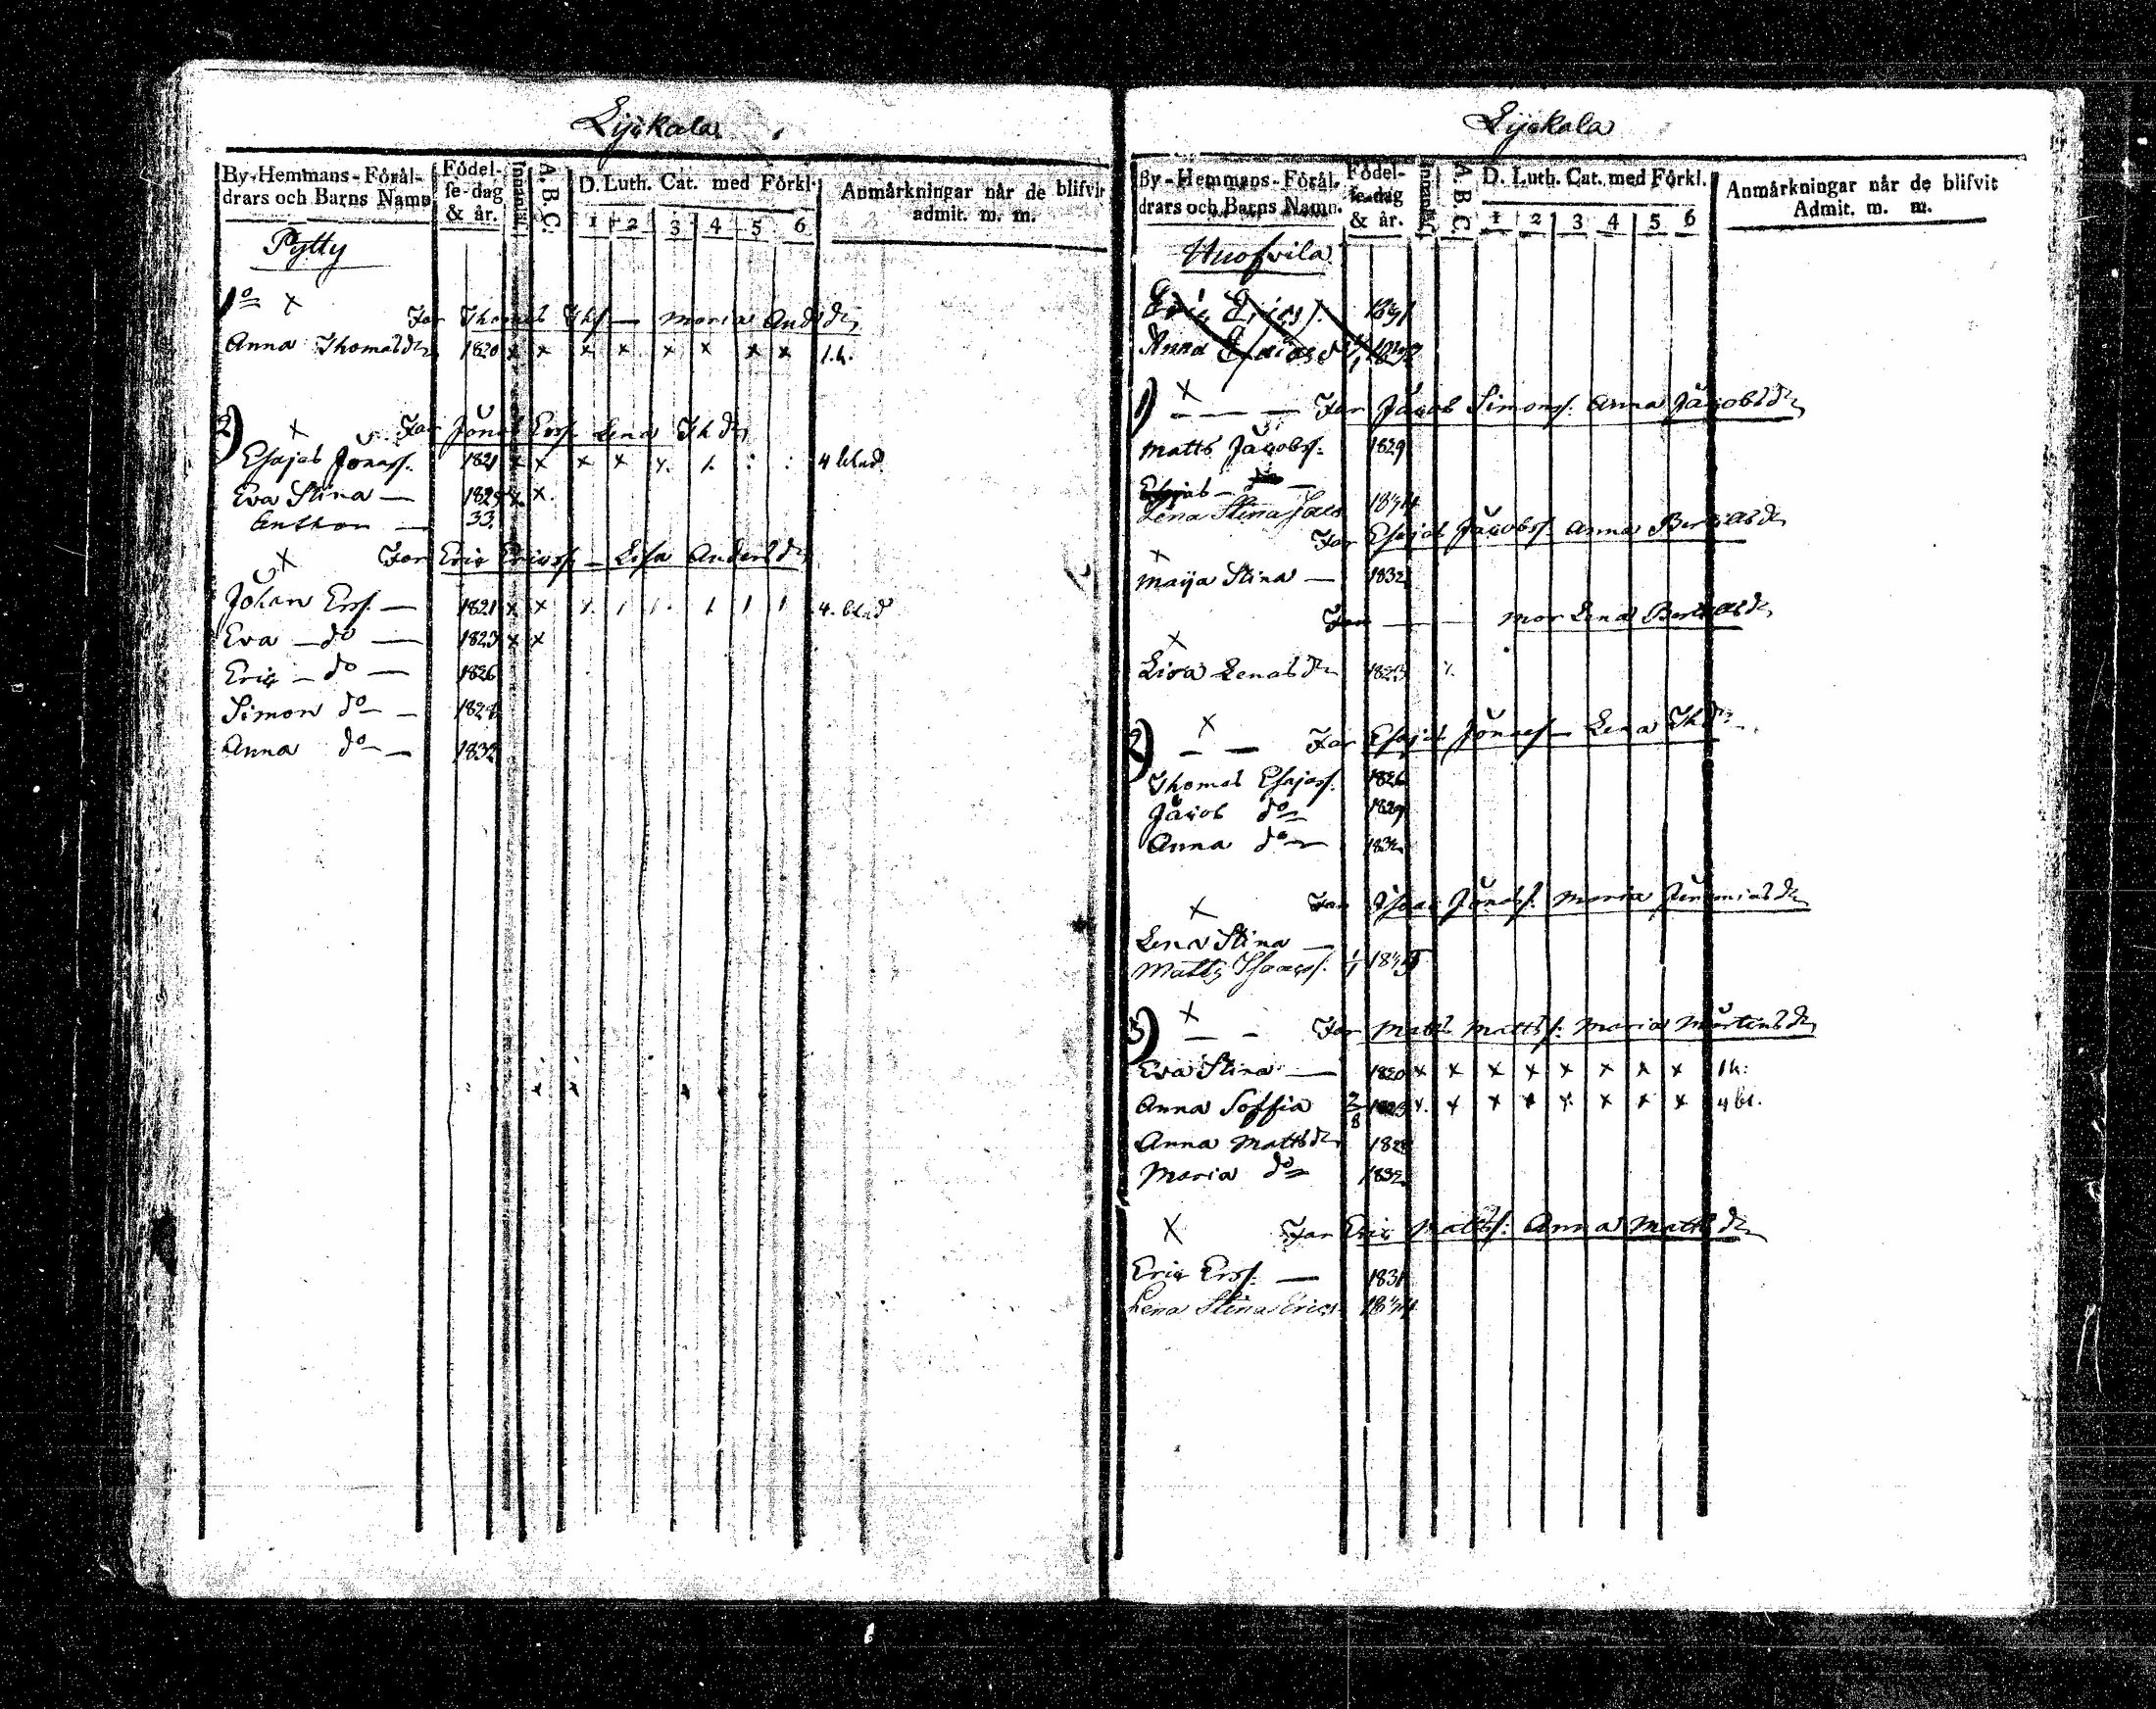 Lyökala
By-Hemmans-Föräl-
drars och Barns Namn
Födel-
se-dag
& år.
Innanläs
A.B.C.
D. Luth. Cat. med Förkl.
1 2 3 4 5 6
Anmärkningar när de blifvit
admit. m. m.
Pytty
1o x
Far Thomas Ths — Maria Andsdr
Anna Thomasdr 1820 x x x x x x x x 1.h.
2) x Far Jonas Erss. Lena Thdr
Esajas Jonass. 1821 x x x x x. 4 blad
Eva Stina — 1825 x x.
Anthon — 33.
x Far Eric Ericss — Lisa Andersdr
Johan Erss. — 1821 x x 4. blad
Eva — do — 1823 x x
Eric — do — 1826
Simon do — —
Anna do — — 1832
Lyökala
By-Hemmans-Föräl-
drars och Barns Namn.
Födel-
se-dag
& år.
Innanläs
A.B.C.
D. Luth. Cat. med Förkl.
1 2 3 4 5 6
Anmärkningar när de blifvit
Admit. m. m.
Huofvila
Eric Ericss.
Anna Ericsd
1) x — — — Far Jacob Simonss. Anna Jacobsdr
Matts Jacobss. 1829
Esajas — do —
Lena Stina Jacs
Far Esajas Jacobss. Anna Bertilsdr
x
Maija Stina — 1832
Far — — Mor Lena Bertilsdr
x
Lisa Lenasdr 1823
2) x — — Far Esajas Jonass — Lena Thdr
Thomas Esajass. 1826
Jacob do — 1829
Anna do — 1832
x Far Isaac Jonass. Maria Jeremiasdr
Lena Stina —
Matts Isaacss.
3) x — - Far Matts Mattss: Maria Mårtensdr
Eva Stina — 1820 x x x x x x x x 1h:
Anna Soffia 2/8 1823 x. x x x x x x x 4 bl.
Anna Mattsdr 1828
Maria do 1832
x Far Eric Mattss: Anna Mattsdr
Eric Erss: — 1831
Lena Stina Erics